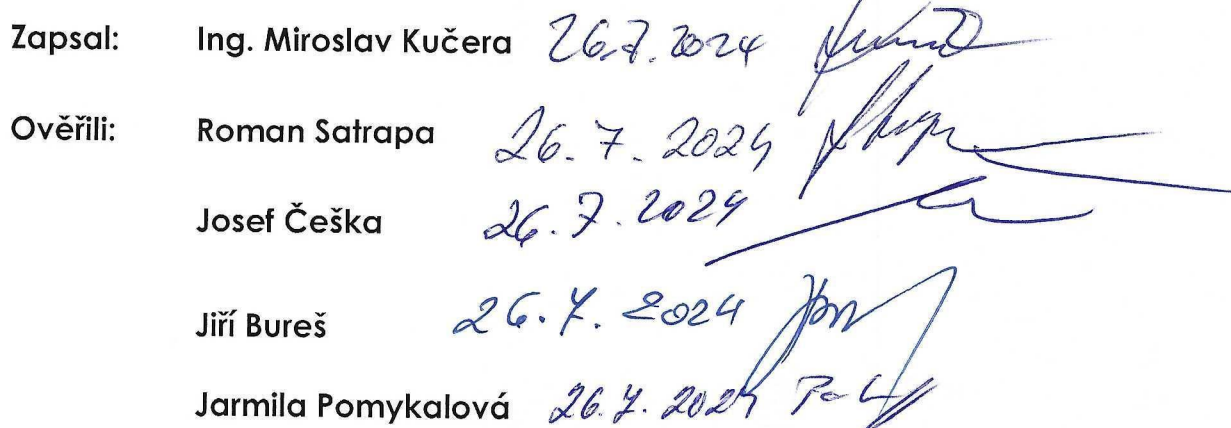 Zapsal: Ing. Miroslav Kučera 26.7.2024
Ověřili: Roman Satrapa 26.7.2024
Josef Češka 26.7.2024
Jiří Bureš 26.7.2024
Jarmila Pomykalová 26.7.2024